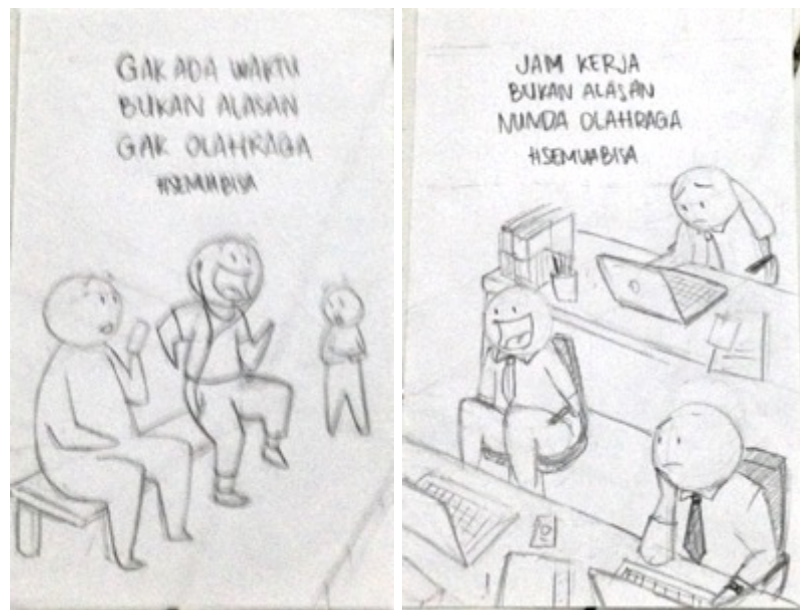 GAK ADA WAKTU
BUKAN ALASAN
GAK OLAHRAGA
#SEMUABISA
JAM KERJA
BUKAN ALASAN
NUNDA OLAHRAGA
#SEMUABISA